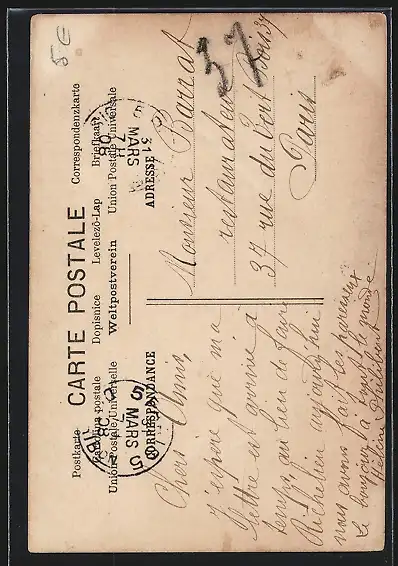 5€
CARTE POSTALE
Postkarte Dopisnice Levelező-Lap Correspondenzkarte
Cartolina postale Briefkaart
Union Postale Universelle Weltpostverein Union Postale Universale
CORRESPONDANCE
ADRESSE
31
MARS
08
MARS
37
Chers Amis,
J'espère que ma
lettre est arrivée à
temps, au lieu de faire
Richelieu aujourd'hui
nous avons fait les paresseux
Le bonjour à tout le monde
Hélène Philibert
Monsieur Barrat
restaurateur
37 rue du Vert Bois 37
Paris